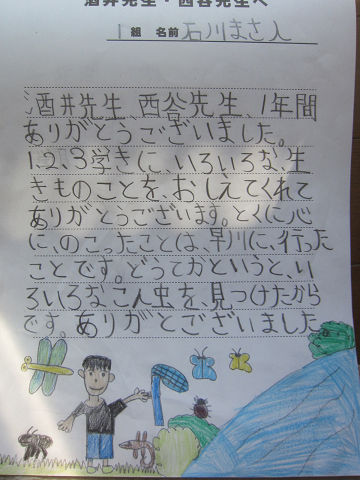 酒井先生・西谷先生へ
1組 名前 石川まさと
酒井先生、西谷先生、1年間
ありがとうございました。
1.2.3学きに、いろいろな、生
きもののことを、おしえてくれて
ありがとうございます。とくに心
に、のこったことは、早川に、行った
ことです。どうてかというと、い
ろいろなこん虫を、見つけたから
です。ありがとございました。